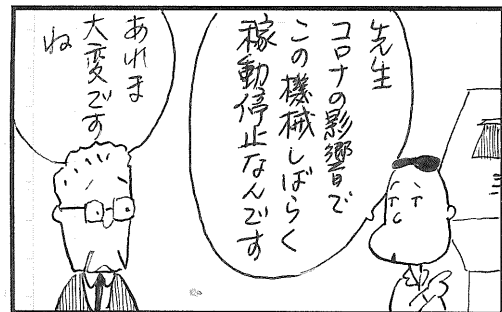 先生
コロナの影響で
この機械しばらく
稼動停止なんです
あれま
大変です
ね